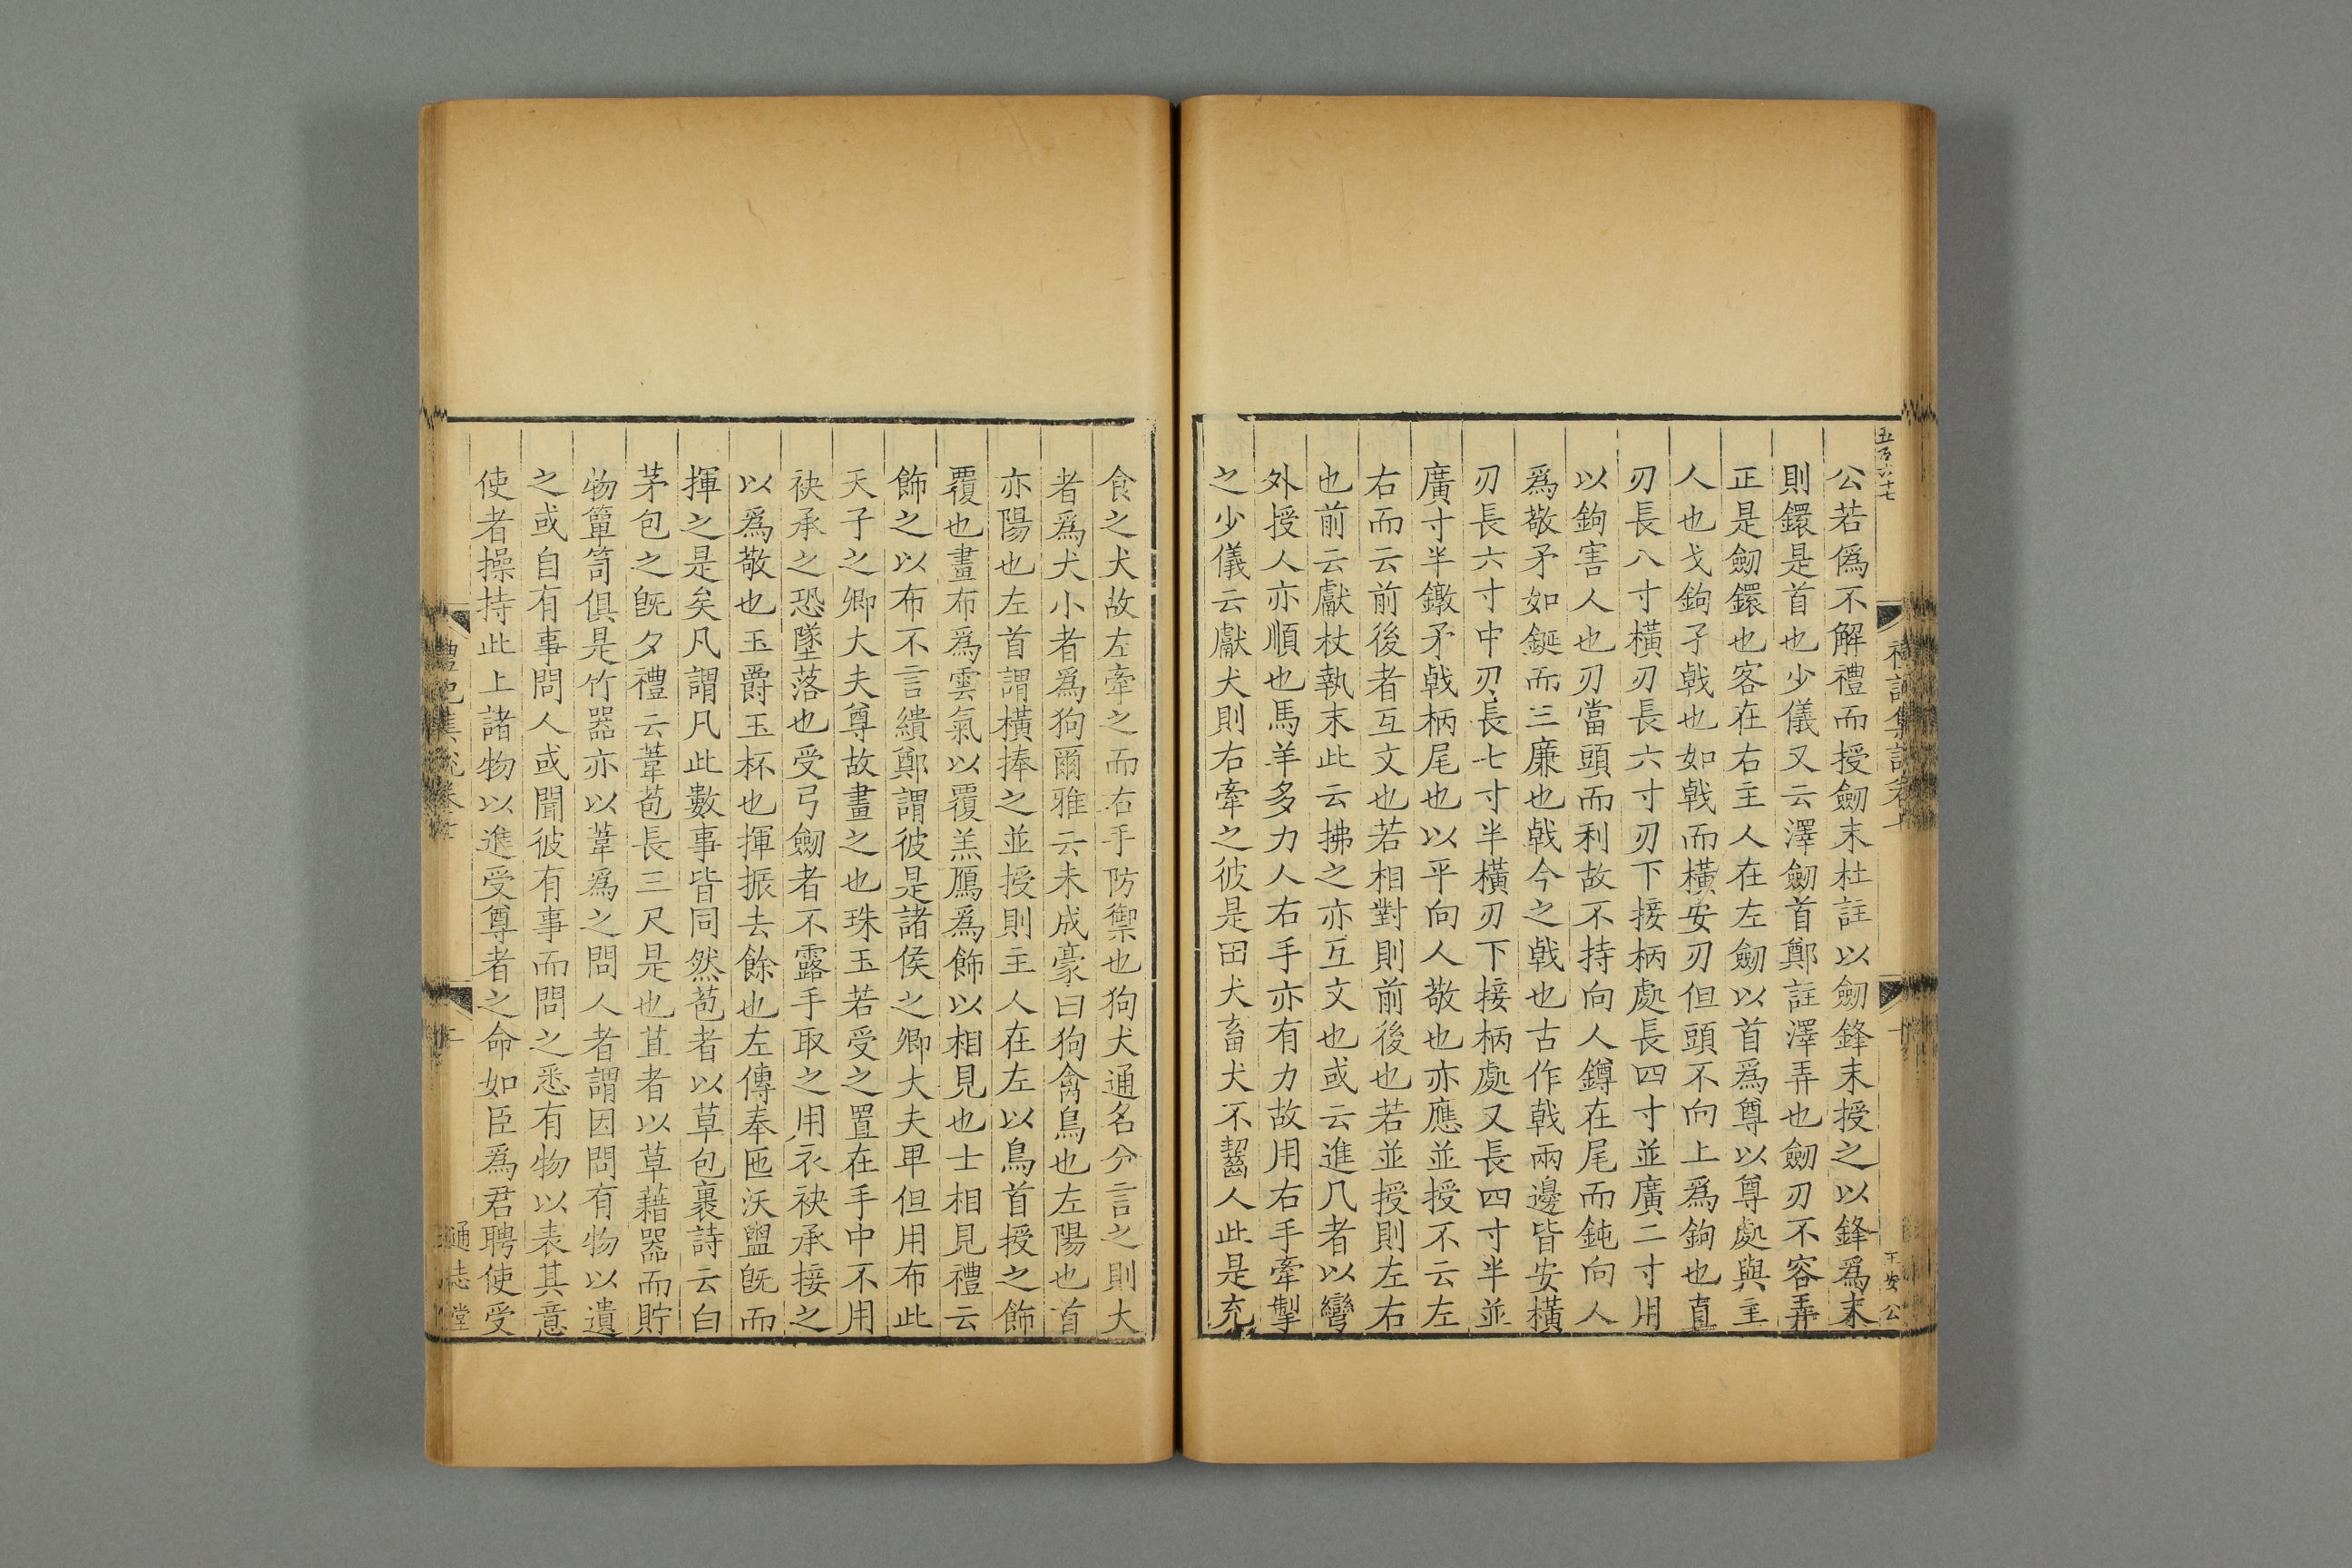 五百六十七
公若僞不解禮而授劒末杜註以劒鋒末授之以鋒爲末
則鐶是首也少儀又云澤劒首鄭註澤弄也劒刃不容弄
正是劒鐶也客在右主人在左劒以首爲尊以尊處與主
人也戈鉤孑戟也如戟而橫安刃但頭不向上爲鉤也直
刃長八寸橫刃長六寸刃下接柄處長四寸並廣二寸用
以鉤害人也刃當頭而利故不持向人鐏在尾而鈍向人
爲敬矛如鋋而三廉也戟今之戟也古作戟兩邊皆安橫
刃長六寸中刃長七寸半橫刃下接柄處又長四寸半並
廣寸半鐓矛戟柄尾也以平向人敬也亦應並授不云左
右而云前後者互文也若相對則前後也若並授則左右
也前云獻杖執末此云拂之亦互文也或云進几者以彎
外授人亦順也馬羊多力人右手亦有力故用右手牽掣
之少儀云獻犬則右牽之彼是田犬畜犬不齧人此是充
食之犬故左牽之而右手防禦也狗犬通名分言之則大
者爲犬小者爲狗爾雅云未成豪曰狗禽鳥也左陽也首
亦陽也左首謂橫捧之並授則主人在左以鳥首授之飾
覆也畫布爲雲氣以覆羔鴈爲飾以相見也士相見禮云
飾之以布不言繢鄭謂彼是諸侯之卿大夫卑但用布此
天子之卿大夫尊故畫之也珠玉若受之置在手中不用
袂承之恐墜落也受弓劒者不露手取之用衣袂承接之
以爲敬也玉爵玉杯也揮振去餘也左傳奉匜沃盥旣而
揮之是矣凡謂凡此數事皆同然苞者以草包裹詩云白
茅包之旣夕禮云葦苞長三尺是也苴者以草藉器而貯
物簞笥俱是竹器亦以葦爲之問人者謂因問有物以遺
之或自有事問人或聞彼有事而問之悉有物以表其意
使者操持此上諸物以進受尊者之命如臣爲君聘使受
通志堂